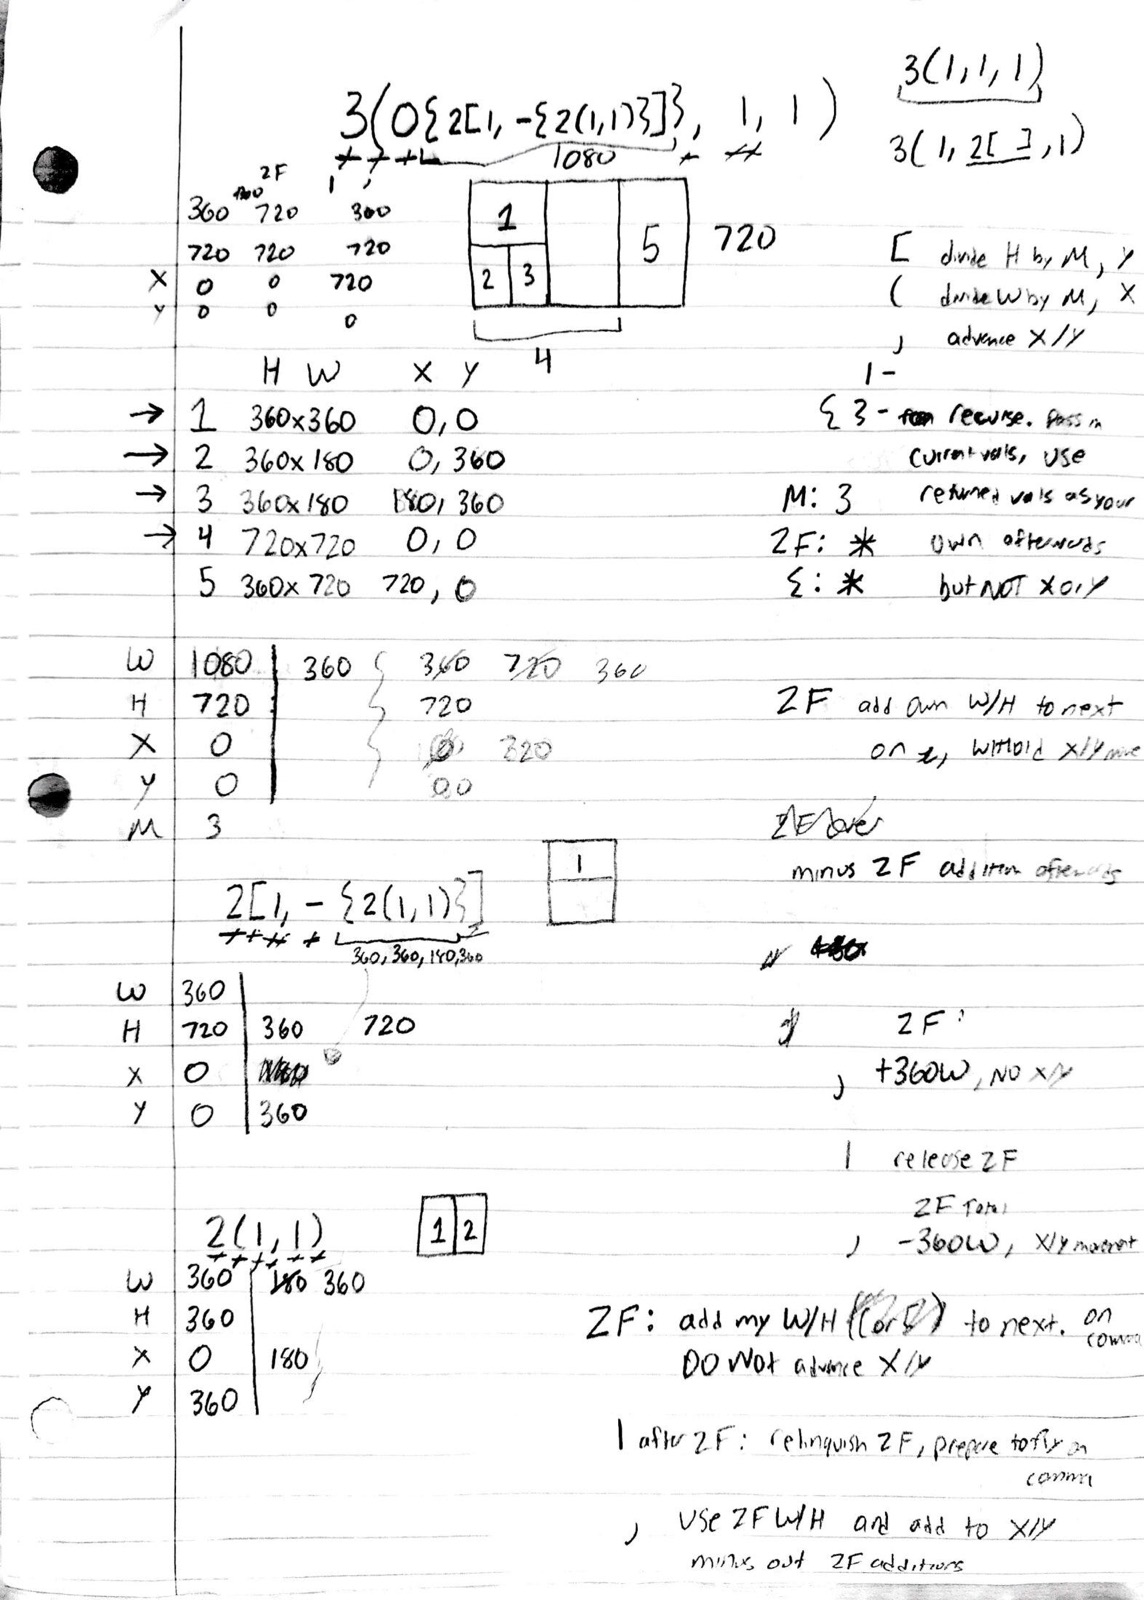 3(1,1,1)
3(0{2[1,-{2(1,1)}]}, 1, 1)
3(1, 2[ ], 1)
1080
2F
360 720 360
720 720 720
X 0 0 720
Y 0 0 0
1 2 3 5 720
4
[ divide H by M, Y
( divide W by M, X
, advance X/Y
1 -
{ } - recurse. Pass in
current vals, use
returned vals as your
own afterwards
but NOT X or Y
H W X Y
→ 1 360x360 0,0
→ 2 360x180 0,360
→ 3 360x180 180,360
→ 4 720x720 0,0
5 360x720 720,0
M: 3
ZF: *
{: *
W 1080 360 { 360 720 360
H 720 720
X 0 320
Y 0 00
M 3
ZF add own W/H to next
on , withold X/Y move
ZF over
minus ZF addition afterwards
1
2[1, - {2(1,1)}]
360, 360, 180, 360
W 360
H 720 360 720
X 0
Y 0 360
ZF:
, +360W, NO X/Y
1 release ZF
ZF Total
, -360W, X/Y movement
2(1,1)
1 2
W 360 180 360
H 360
X 0 180
Y 360
ZF: add my W/H (( or [) to next. on comma
DO NOT advance X/Y
1 after ZF: relinquish ZF, prepare to fly on
comma
, USE ZF W/H and add to X/Y
minus out ZF additions